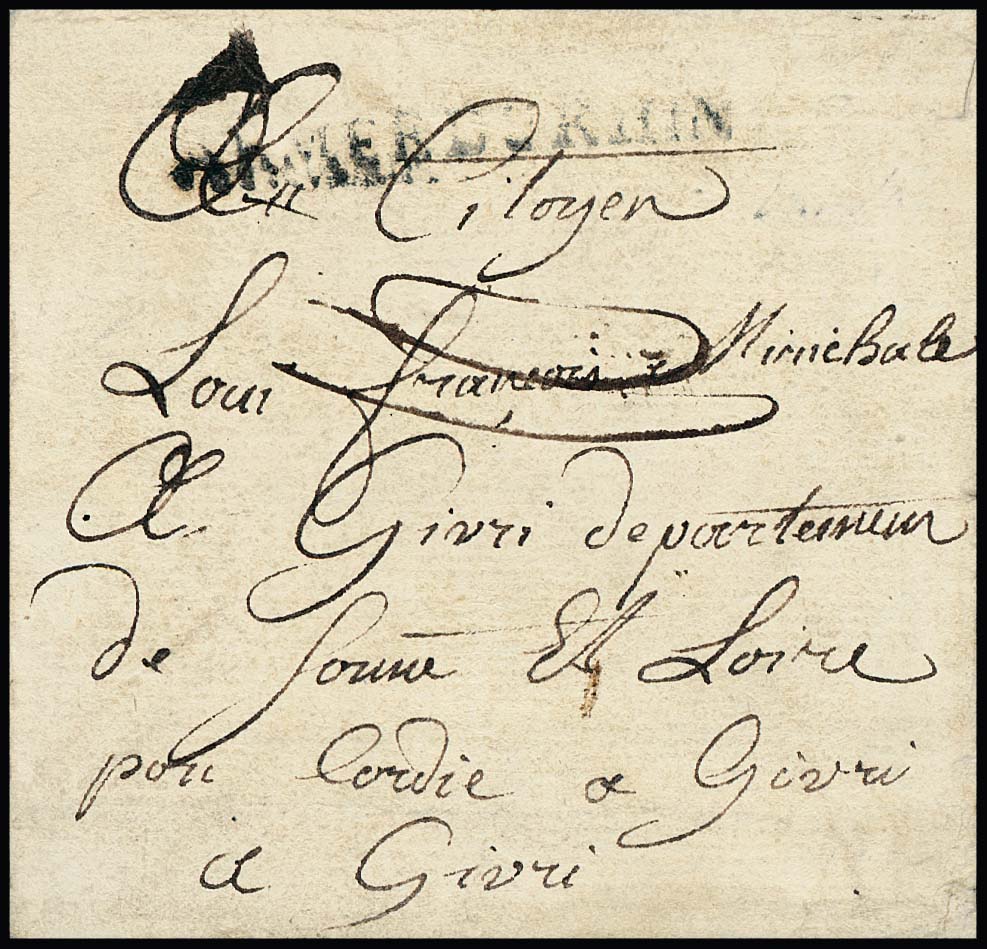 ARMÉE DU RHIN
Au Citoyen
Loui françois Minichale
A Givri departemum
de Sonne Et Loire
pou Cordie a Givri
a Givri